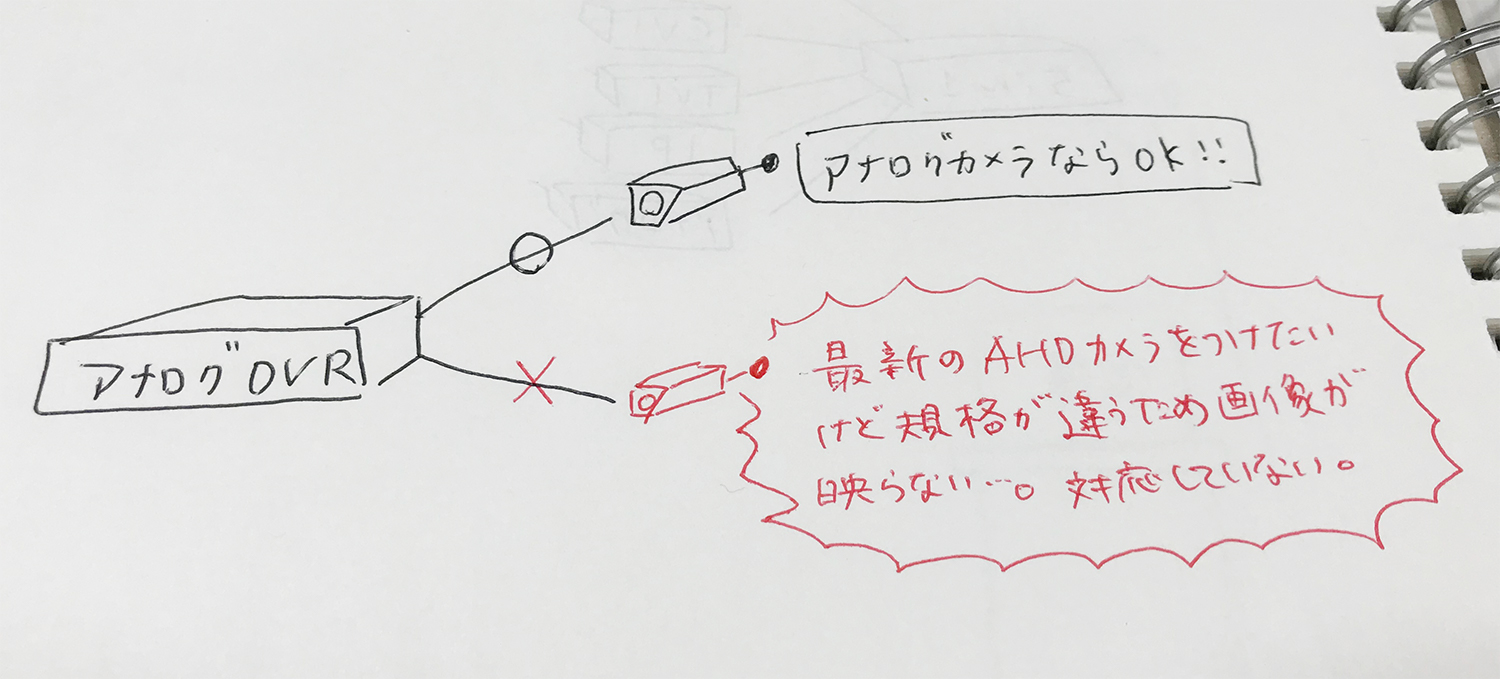 アナログカメラならOK!!
アナログDVR
最新のAHDカメラをつけたい
けど規格が違うため画像が
映らない…。対応していない。